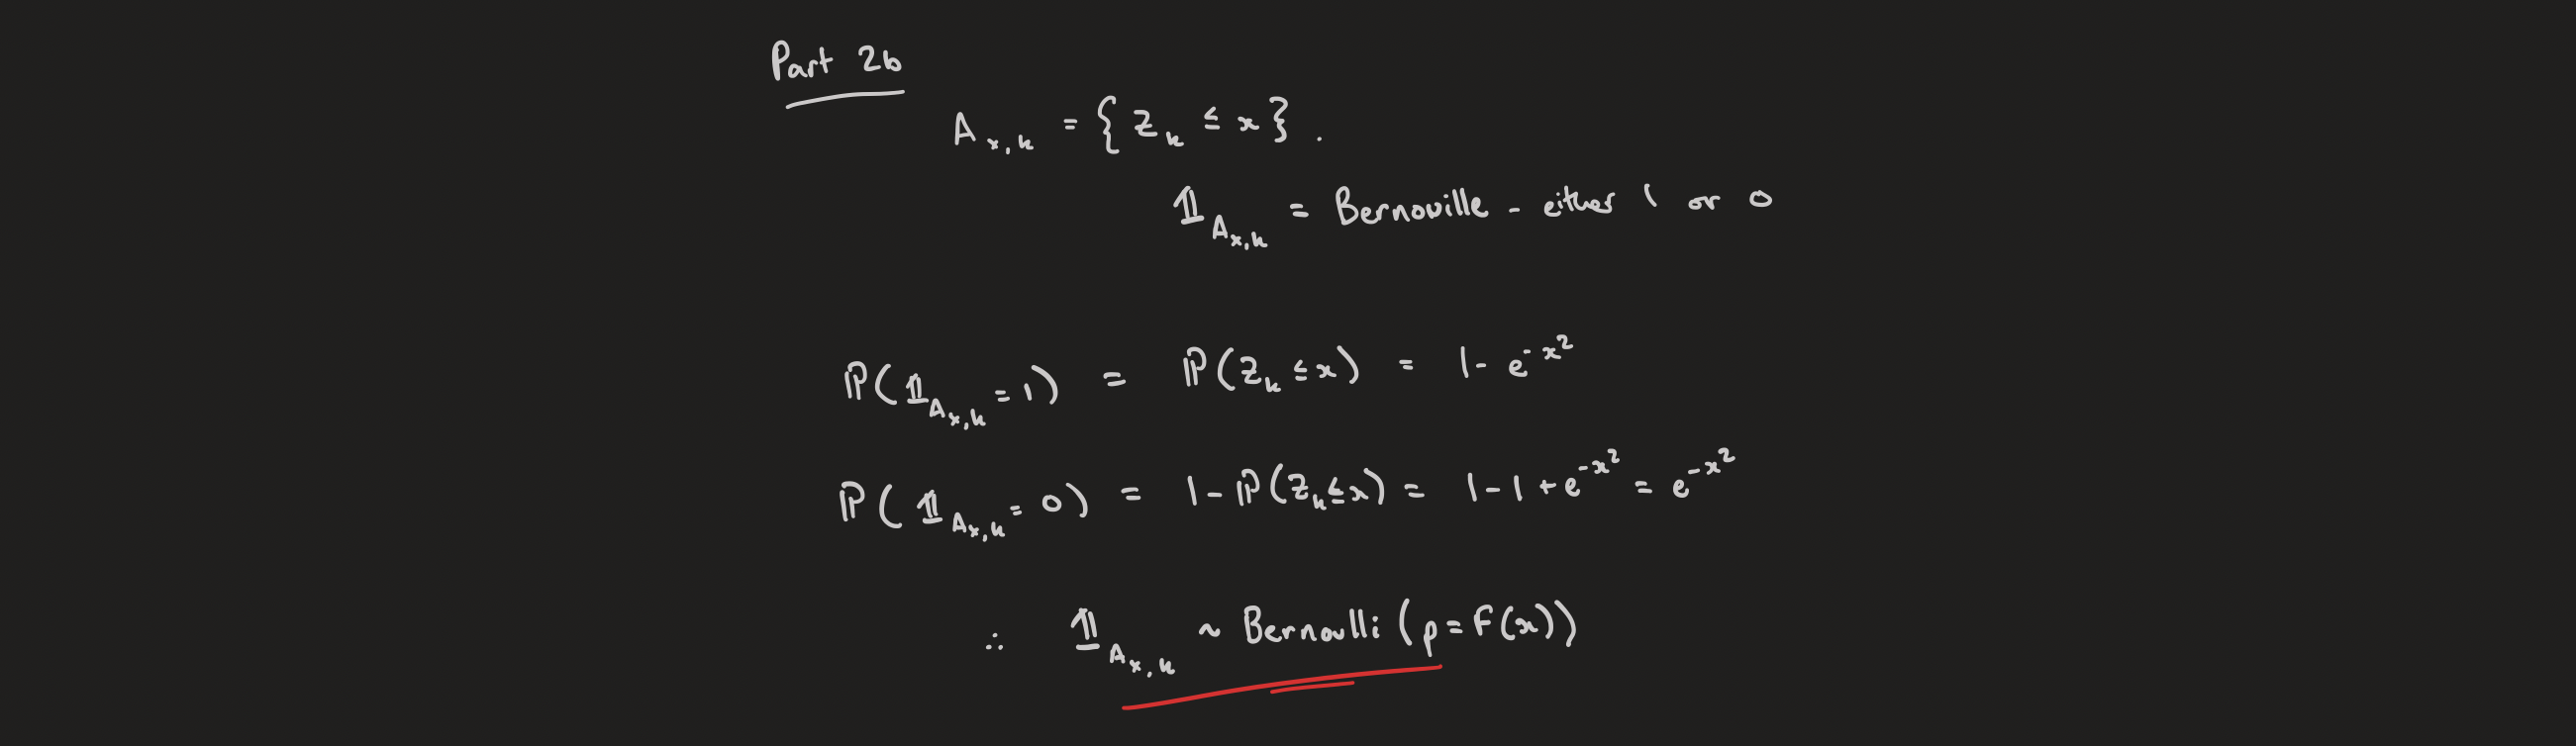 Part 2b
A_{x,k} = {Z_k ≤ x}.
𝟙_{A_{x,k}} = Bernouille - either 1 or 0
ℙ(𝟙_{A_{x,k}} = 1) = ℙ(Z_k ≤ x) = 1 - e^{-x^2}
ℙ(𝟙_{A_{x,k}} = 0) = 1 - ℙ(Z_k ≤ x) = 1 - 1 + e^{-x^2} = e^{-x^2}
∴ 𝟙_{A_{x,k}} ~ Bernoulli (p = F(x))